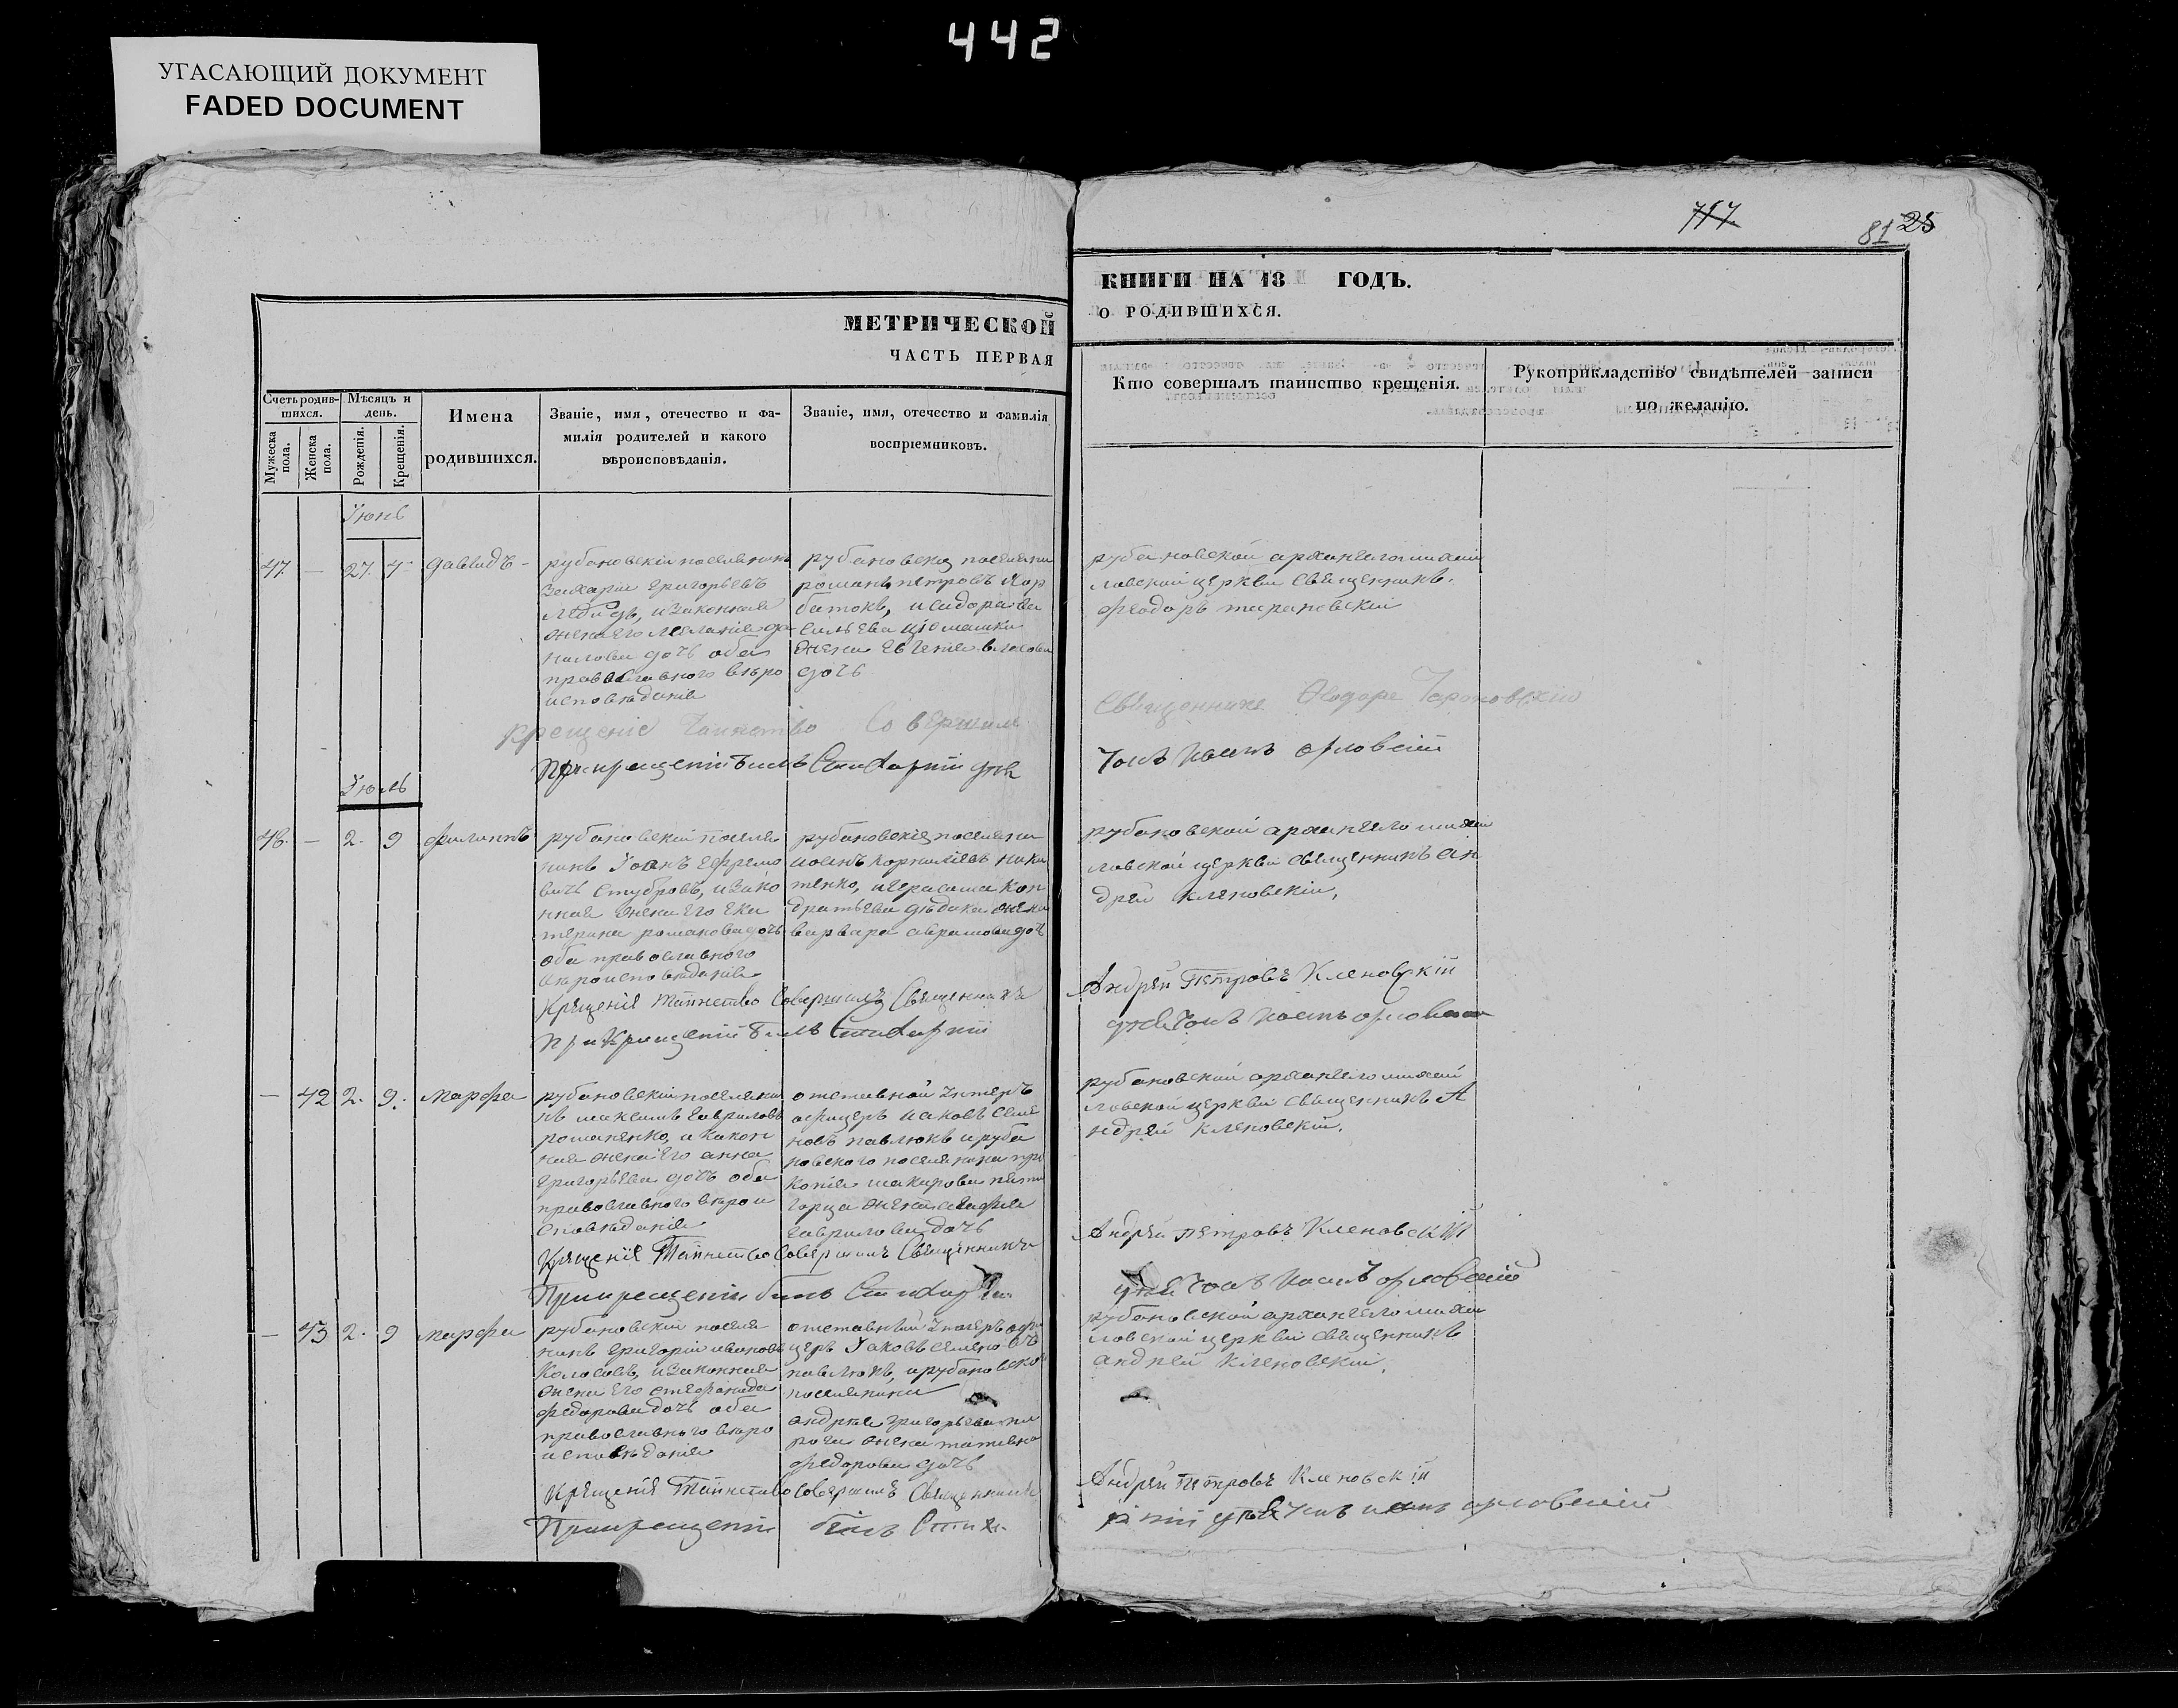 442
УГАСАЮЩИЙ ДОКУМЕНТ
FADED DOCUMENT
717.
81 25
МЕТРИЧЕСКОЙ
ЧАСТЬ ПЕРВАЯ
КНИГИ НА 18 ГОДЪ.
О РОДИВШИХСЯ.
Счетъ родив-
шихся.
Мужеска
пола.
Женска
пола.
Мѣсяцъ и
день.
Рожденія.
Крещенія.
Имена
родившихся.
Званіе, имя, отечество и фа-
милія родителей и какого
вѣроисповѣданія.
Званіе, имя, отечество и фамилія
воспріемниковъ.
Кто совершалъ таинство крещенія.
Рукоприкладство свидѣтелей записи
по желанію.
Іюнь
47. — 27.
давидъ -
рубановскій поселянинъ
захарій григорьевъ
лебидь, и законная
жена его меланія да
нилова дочь оба
православнаго вѣро
исповѣданія
рубановскіи поселяни
романъ петровъ
и сидора ва
сильева
жена евгенія
дочь
рубановской архангеломихаи
ловской церкви священникъ
феодоръ тарановскій
крещеніе таинство совершилъ
священникъ Феодоръ Тарановскій
при крещеніи билъ Стихарній дяч
Іоанъ орловскій
Іюль
48. — 2. 9 филиппъ
рубановскій поселя
нинъ Іоанъ ефремо
вичь и зако
нная жена его ека
терина романова дочь
оба православного
вѣроисповѣданія
рубановскія поселяни
іосипъ корниліевъ ники
тенко, и герасима кон
дратьева дѣдика жена
варвара аврамова доч
рубановской архангеломихаи
ловской церкви священникъ ан
дрей кленовскій,
Крещенія Таинство Совершилъ Священникъ
Андрей Петровъ Кленовскій
при Крещеніи билъ Стихарній
орловскій
— 42 2. 9. марфа
рубановскій поселяни
нъ максимъ гавриловъ
романенко, и закон
ная жена его анна
григорьева дочь оба
православного вѣрои
сповѣданія
отставной унтеръ
офицеръ иаковъ семе
новъ павлюкъ и руба
новского поселянина про
копія макарова пяти
горца жена агафія
гаврилова дочь
рубановской архангеломихаи
ловской церкви священникъ А
ндрей кленовскій.
Крещенія Таинство Совершилъ Священникъ
Андрей Петровъ Кленовскій
При крещеніи билъ
орловскій
— 43 2. 9 марфа
рубановскій поселя
нинъ григорій ивановъ
колосовъ, и законная
жена его стефанида
федорова дочь оба
православного вѣро
исповѣданія
отставній унтеръ офи
церъ Іаковъ семеновъ
павлюкъ, и рубановского
поселянина
андрея григорьева пи
рога жена татіяна
федорова дочь
рубановской архангеломихаи
ловской церкви священникъ
андрей кленовскій,
Крещенія Таинство Совершилъ Священникъ
Андрей Петровъ Кленовскій
При крещеніи билъ Стиха-
рній орловскій